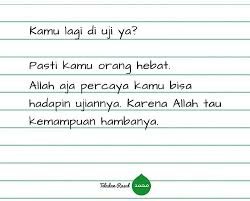 Kamu lagi di uji ya?
Pasti kamu orang hebat.
Allah aja percaya kamu bisa
hadapin ujiannya. Karena Allah tau
kemampuan hambanya.